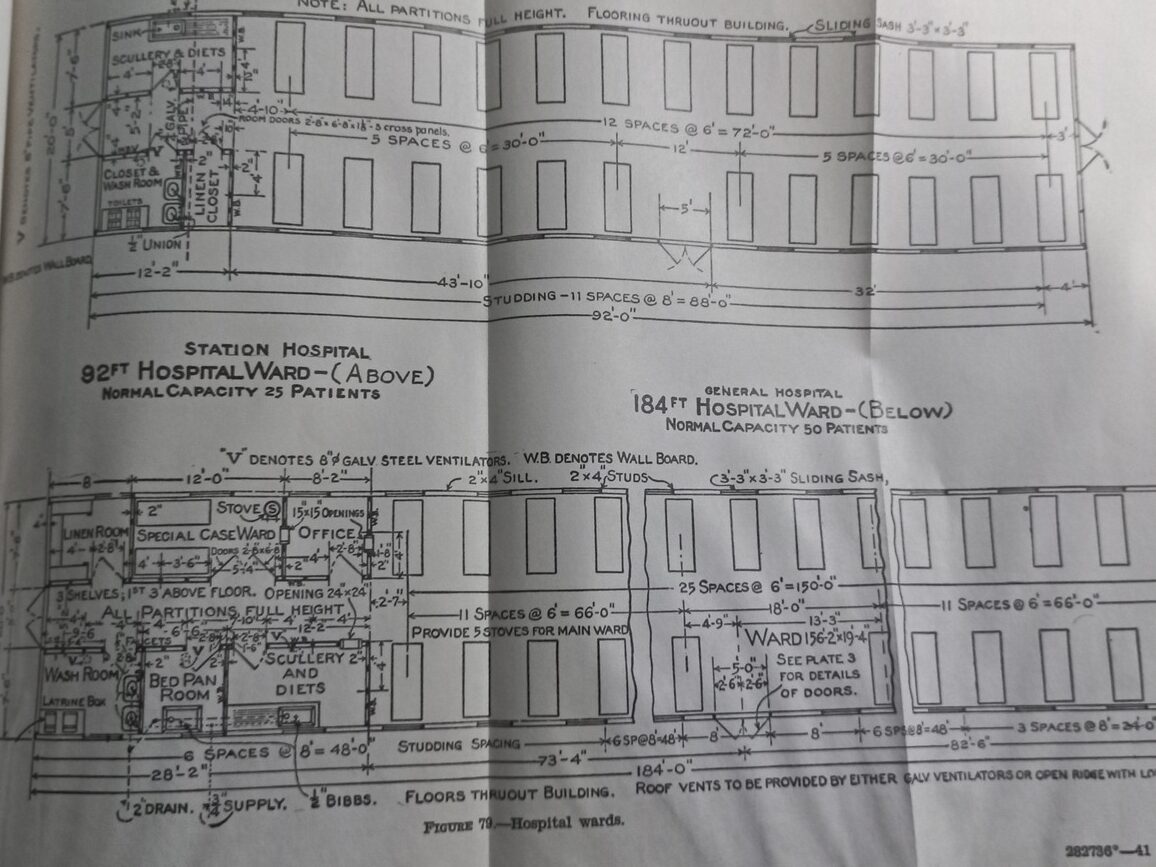 NOTE: ALL PARTITIONS FULL HEIGHT. FLOORING THRUOUT BUILDING. SLIDING SASH 3'-3"×3'-3"
SINK
W.B.
SCULLERY & DIETS
4'
4'
4'-10"
ROOM DOORS 2'-8"×6'-8"×1⅜"-5 cross panels.
12 SPACES @ 6' = 72'-0"
5 SPACES @ 6'=30'-0"
12'
5 SPACES @6'=30'-0"
3'
20'-0"
7'-6"
5'-2"
CLOSET &
WASH ROOM
TOILETS
LINEN
CLOSET
2"
2"
4'
W.B.
5'
7'-6"
½" UNION
W.B. DENOTES WALL BOARD
12'-2"
43'-10"
32'
4'
STUDDING-11 SPACES @ 8' = 88'-0"
92'-0"
STATION HOSPITAL
92FT HOSPITAL WARD-(ABOVE)
NORMAL CAPACITY 25 PATIENTS
GENERAL HOSPITAL
184FT HOSPITAL WARD-(BELOW)
NORMAL CAPACITY 50 PATIENTS
"V" DENOTES 8"φ GALV. STEEL VENTILATORS. W.B. DENOTES WALL BOARD.
8'
12'-0"
8'-2"
2"×4" SILL.
2"×4" STUDS
3'-3"×3'-3" SLIDING SASH,
2"
STOVE Ⓢ
15"×15" OPENINGS
LINEN ROOM
SPECIAL CASE WARD
OFFICE
4'
2'-8"
4'
3'-6"
DOORS 2'-8"×6'-8"
5'-4"
2"
4'
2'-8"
1'-8"
2"
3 SHELVES, 1ST 3' ABOVE FLOOR. OPENING 24"×24"
2'-7"
25 SPACES @ 6'=150'-0"
ALL PARTITIONS FULL HEIGHT
11 SPACES @ 6'=66'-0"
18'-0"
11 SPACES @ 6'=66'-0"
4'-9"
13'-3"
12'-2"
PROVIDE 5 STOVES FOR MAIN WARD
WARD 156'-2"×19'-4"
WASH ROOM
BED PAN
ROOM
SCULLERY
AND
DIETS
2"
2"
4'
5'-0"
2'-6"
2'-6"
SEE PLATE 3
FOR DETAILS
OF DOORS.
LATRINE BOX
6 SPACES @ 8'=48'-0"
STUDDING SPACING
6 SP@8'=48'
8'
8'
6 SPS@8'=48'
3 SPACES @ 8'=24'-0"
28'-2"
73'-4"
82'-6"
184'-0"
2" DRAIN.
¾" SUPPLY.
½" BIBBS.
FLOORS THRUOUT BUILDING.
ROOF VENTS TO BE PROVIDED BY EITHER GALV VENTILATORS OR OPEN RIDGE WITH
FIGURE 79.—Hospital wards.
282736°—41